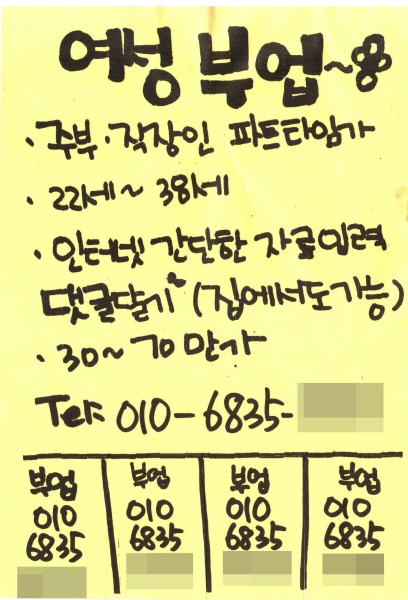 여성 부업~
· 주부 · 직장인 파트타임가
· 22세~ 38세
· 인터넷 간단한 자료입력
댓글달기 (집에서도가능)
· 30~70만가
Tel: 010-6835-
부업 부업 부업 부업
010 010 010 010
6835 6835 6835 6835